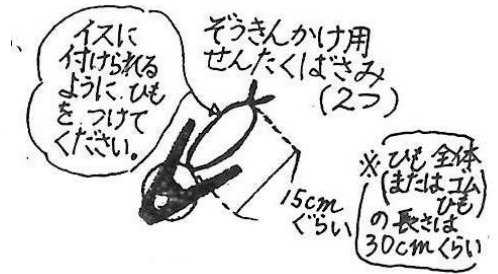 イスに
付けられる
ように、ひも
を つけて
ください。
ぞうきんかけ用
せんたくばさみ
(2つ)
15cm
ぐらい
※ひも全体
(またはゴム
ひも)
の長さは
30cmくらい